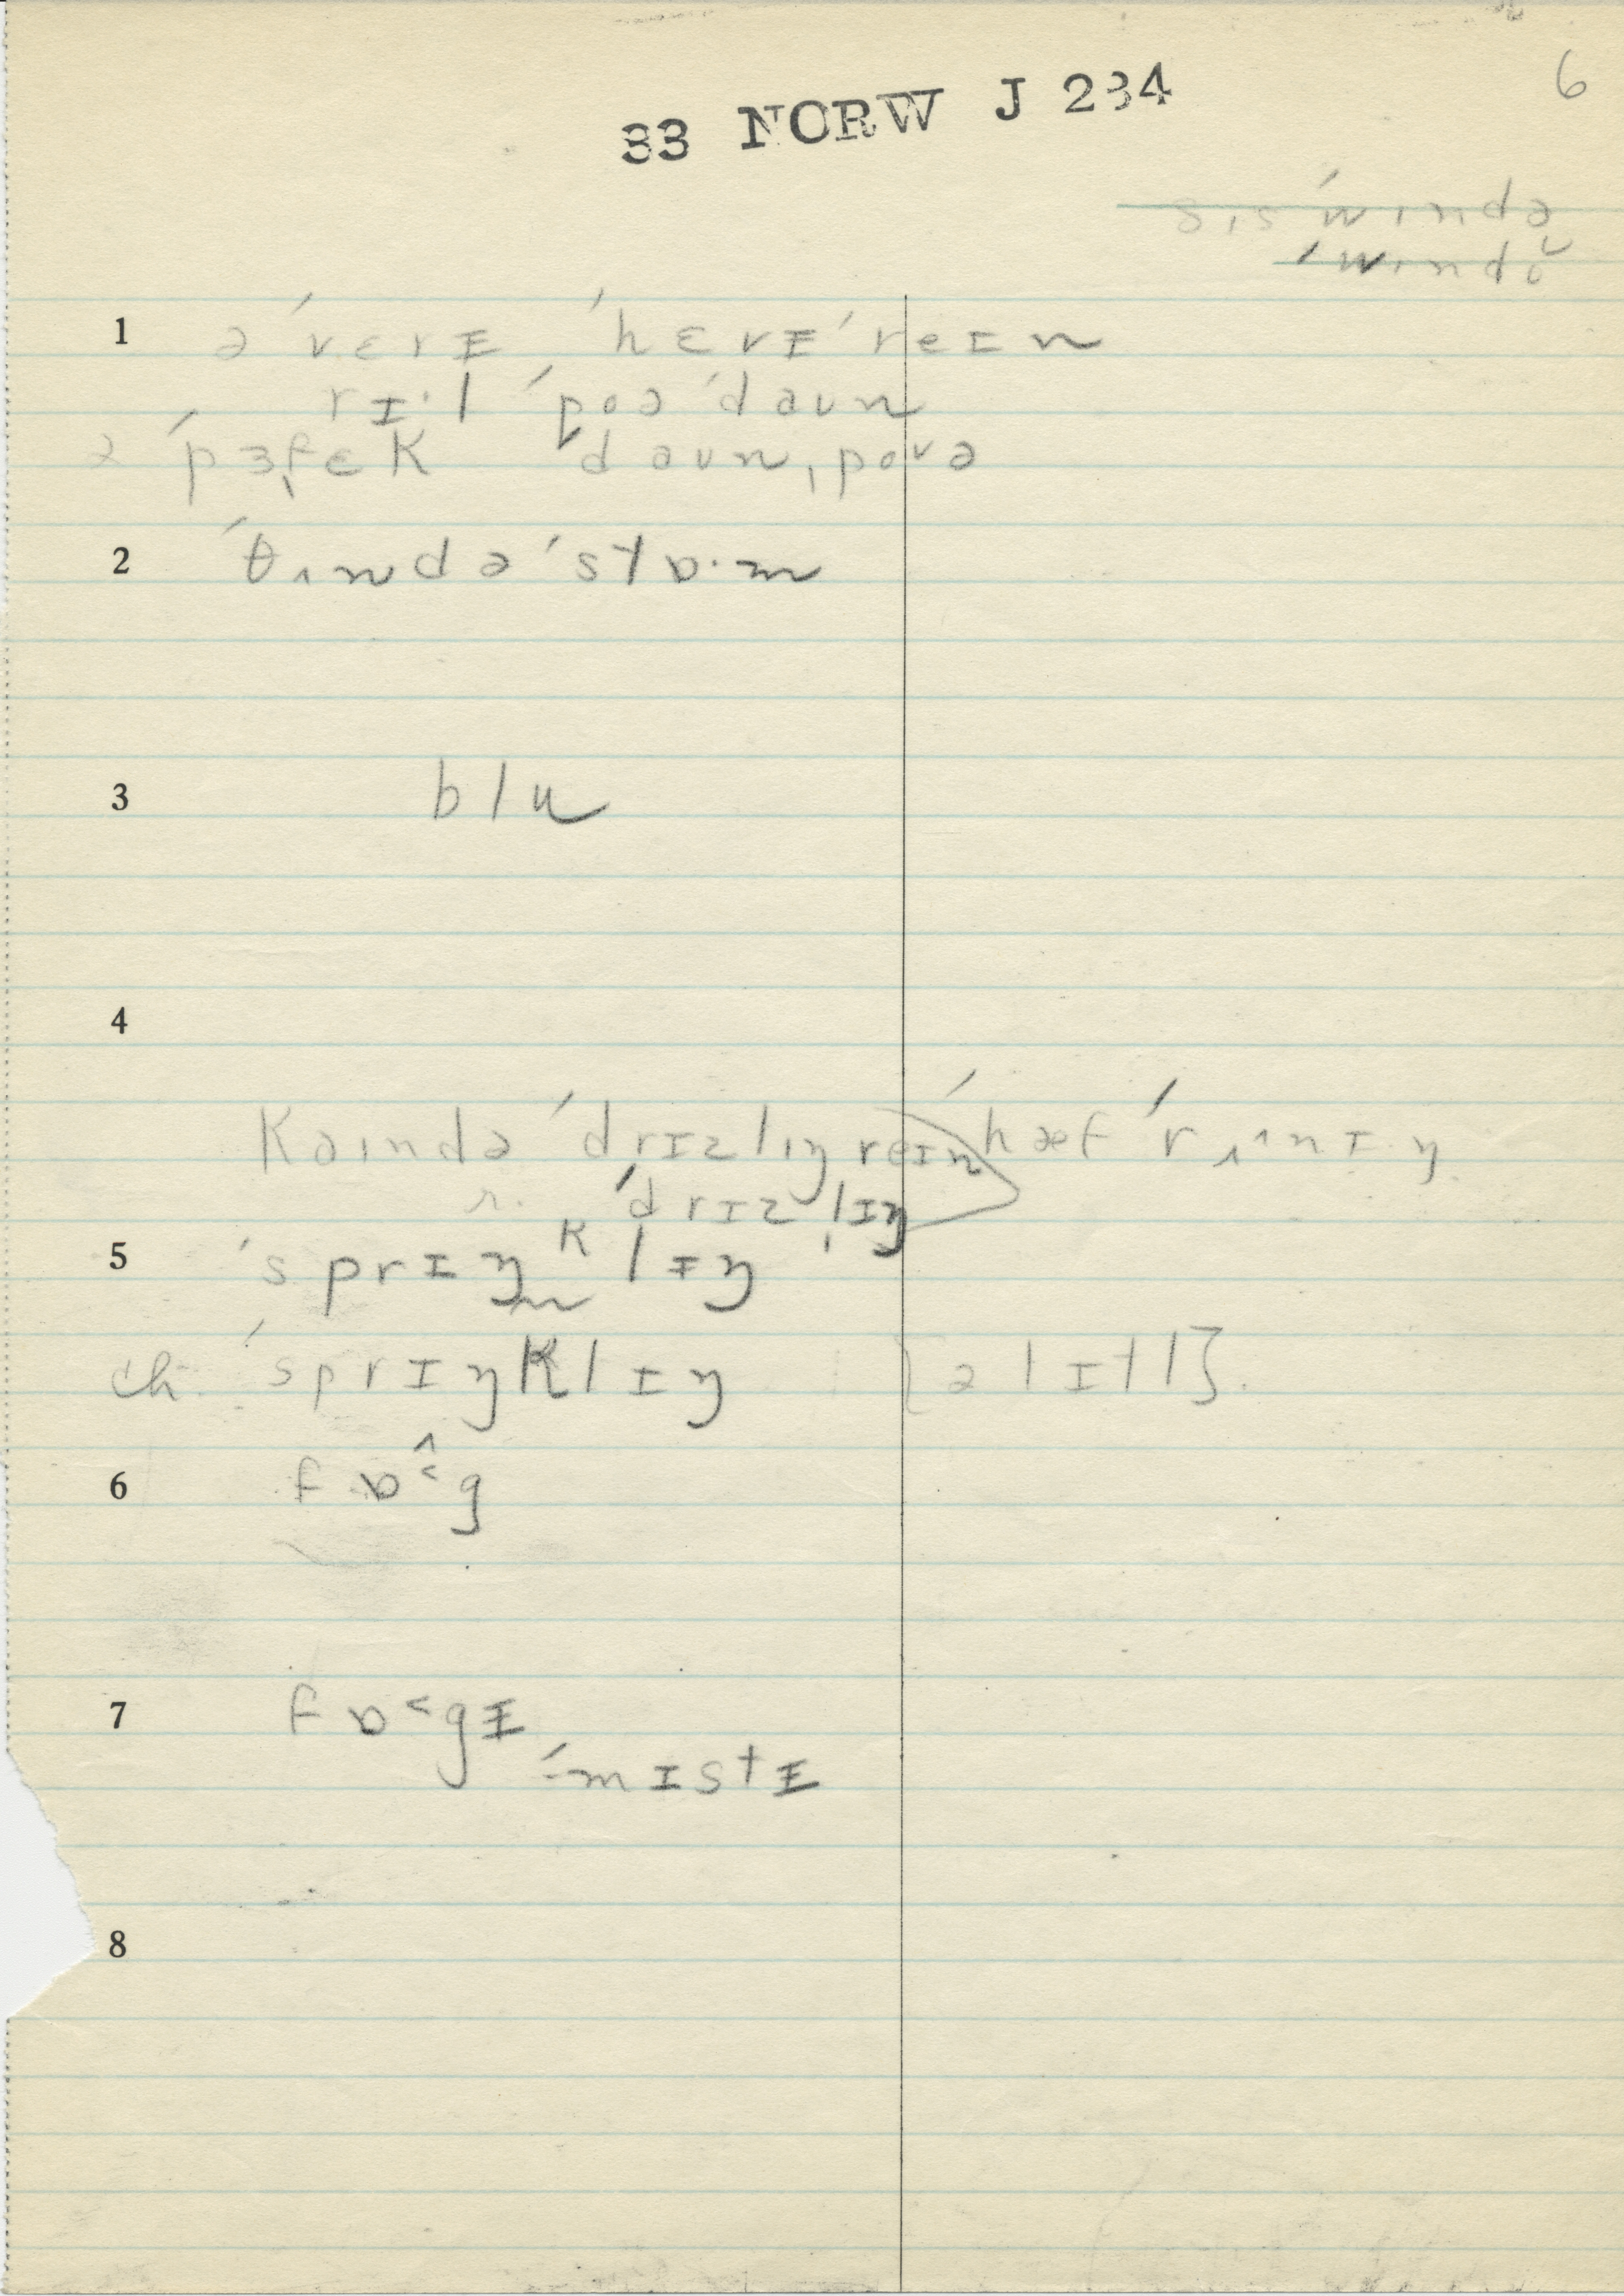 6
33 NORW J 234
sɪs ˈwɪndə
ˈwɪndŏ
1 ə ˈvɛrɪ ˈhɛvɪ ˈreɪn
rɪ·l ˈpoə ˈdaʊn
ə ˈpɜfɛk ˈdaʊnˌpoʊə
2 ˈθʌndə ˈstɒ·m
3 blu
4
kaɪndə ˈdrɪzlɪŋ reɪn hæf ˈrʌnɪŋ
r. ˈdrɪzlɪŋ
5 ˈsprɪŋᵏlɪŋ
ch. ˈsprɪŋklɪŋ [ə lɪtl].
6 fɒ˂g
7 fɒ˂gɪ
ˈmɪstɪ
8